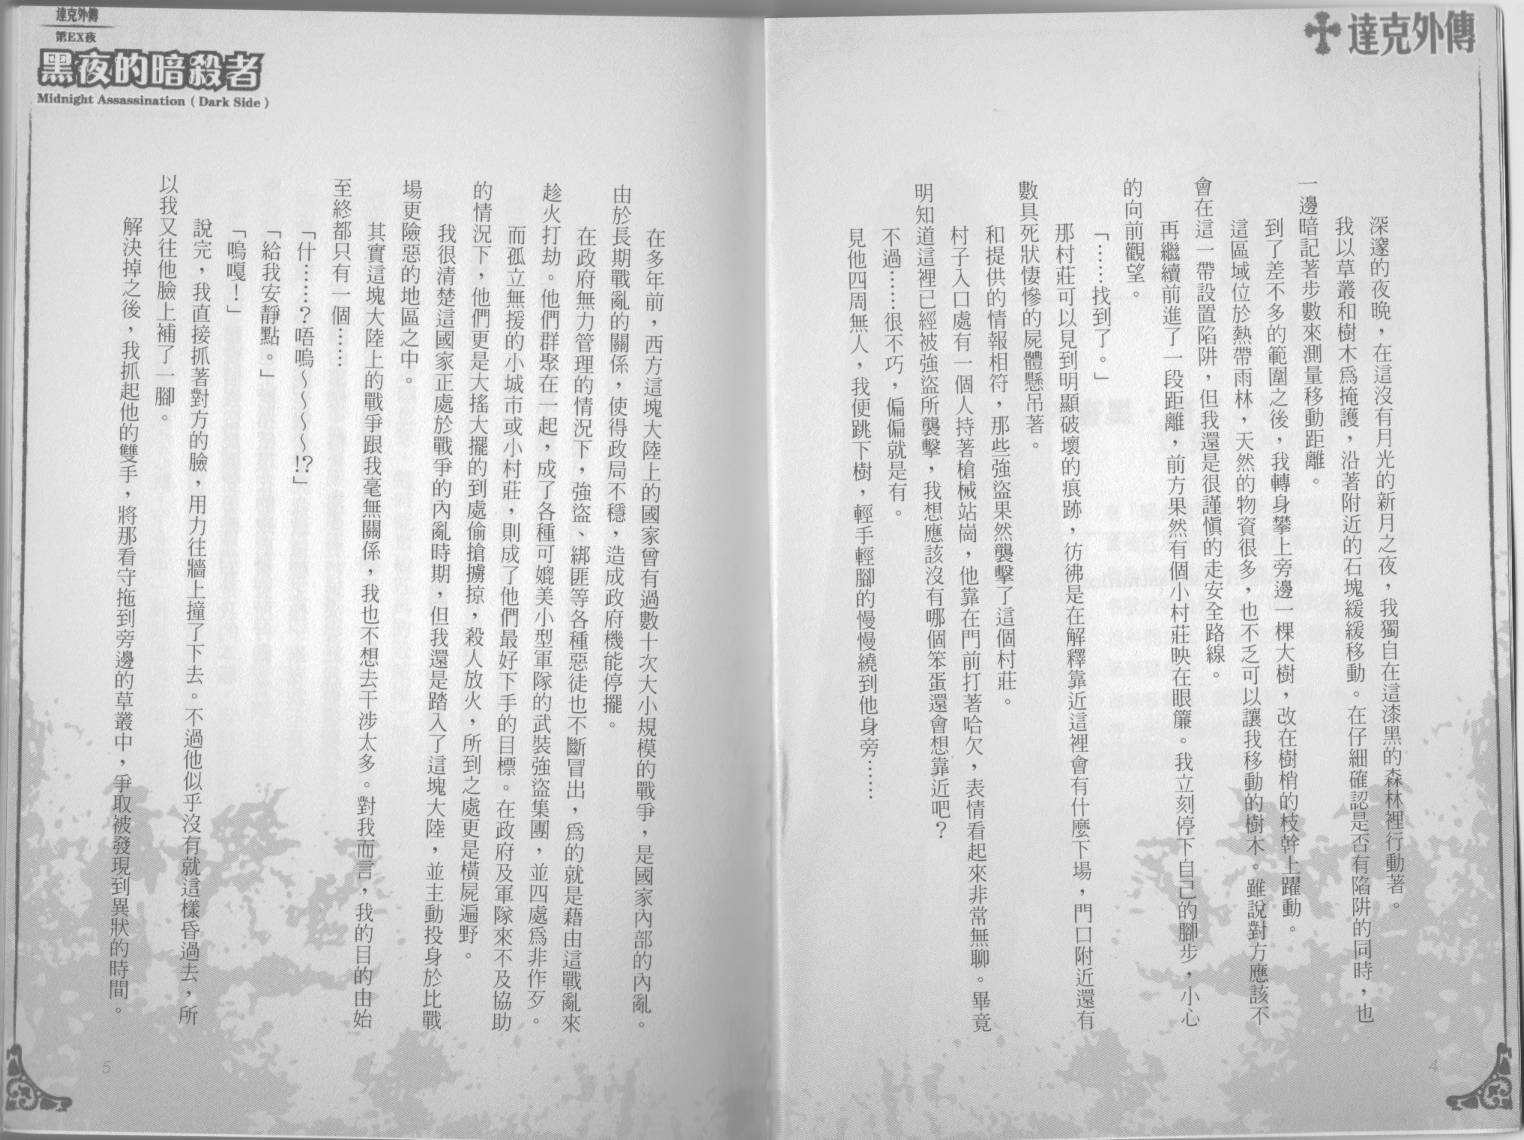 達克外傳
深邃的夜晚，在這沒有月光的新月之夜，我獨自在這漆黑的森林裡行動著。
我以草叢和樹木爲掩護，沿著附近的石塊緩緩移動。在仔細確認是否有陷阱的同時，也
一邊暗記著步數來測量移動距離。
到了差不多的範圍之後，我轉身攀上旁邊一棵大樹，改在樹梢的枝幹上躍動。
這區域位於熱帶雨林，天然的物資很多，也不乏可以讓我移動的樹木。雖說對方應該不
會在這一帶設置陷阱，但我還是很謹慎的走安全路線。
再繼續前進了一段距離，前方果然有個小村莊映在眼簾。我立刻停下自己的腳步，小心
的向前觀望。
「……找到了。」
那村莊可以見到明顯破壞的痕跡，彷彿是在解釋靠近這裡會有什麼下場，門口附近還有
數具死狀悽慘的屍體懸吊著。
和提供的情報相符，那些強盜果然襲擊了這個村莊。
村子入口處有一個人持著槍械站崗，他靠在門前打著哈欠，表情看起來非常無聊。畢竟
明知道這裡已經被強盜所襲擊，我想應該沒有哪個笨蛋還會想靠近吧？
不過……很不巧，偏偏就是有。
見他四周無人，我便跳下樹，輕手輕腳的慢慢繞到他身旁……
4
達克外傳
第EX夜
黑夜的暗殺者
Midnight Assassination ( Dark Side )
在多年前，西方這塊大陸上的國家曾有過數十次大小規模的戰爭，是國家內部的內亂。
由於長期戰亂的關係，使得政局不穩，造成政府機能停擺。
在政府無力管理的情況下，強盜、綁匪等各種惡徒也不斷冒出，爲的就是藉由這戰亂來
趁火打劫。他們群聚在一起，成了各種可媲美小型軍隊的武裝強盜集團，並四處爲非作歹。
而孤立無援的小城市或小村莊，則成了他們最好下手的目標。在政府及軍隊來不及協助
的情況下，他們更是大搖大擺的到處偷搶擄掠，殺人放火，所到之處更是橫屍遍野。
我很清楚這國家正處於戰爭的內亂時期，但我還是踏入了這塊大陸，並主動投身於比戰
場更險惡的地區之中。
其實這塊大陸上的戰爭跟我毫無關係，我也不想去干涉太多。對我而言，我的目的由始
至終都只有一個……
「什……？唔嗚～～～～!?」
「給我安靜點。」
「嗚嘎！」
說完，我直接抓著對方的臉，用力往牆上撞了下去。不過他似乎沒有就這樣昏過去，所
以我又往他臉上補了一腳。
解決掉之後，我抓起他的雙手，將那看守拖到旁邊的草叢中，爭取被發現到異狀的時間。
5